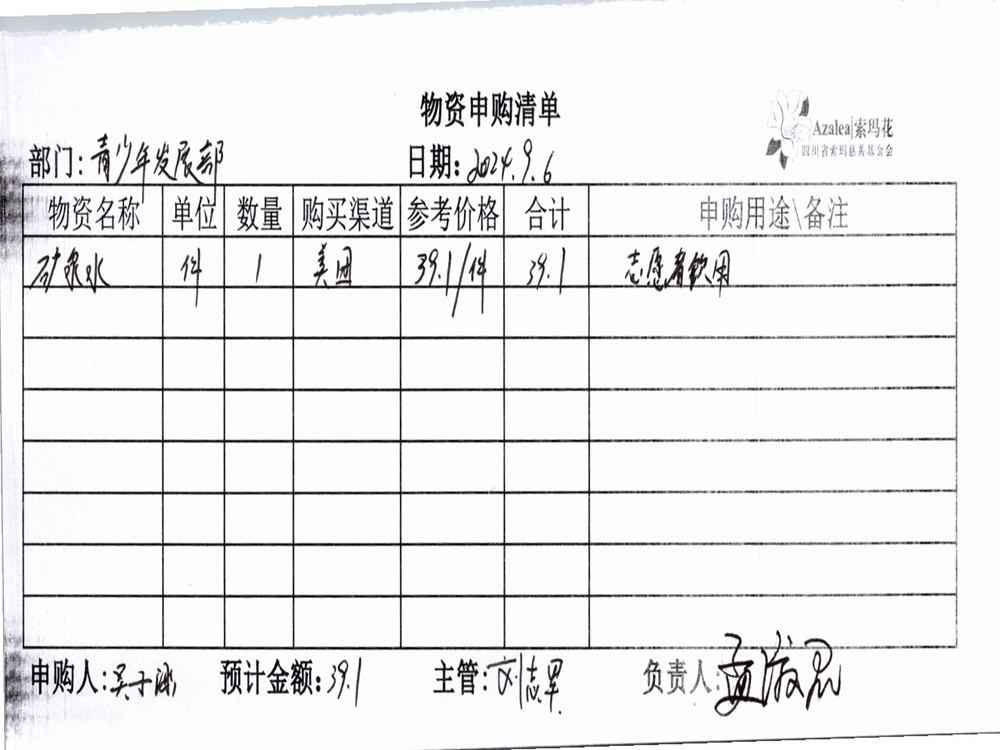 物资申购清单
Azalea|索玛花
四川省索玛慈善基金会
部门:青少年发展部 日期:2024.9.6
物资名称 单位 数量 购买渠道 参考价格 合计 申购用途\备注
矿泉水 件 1 美团 39.1/件 39.1 志愿者饮用
申购人:吴子 预计金额:39.1 主管:刘志军 负责人:孟